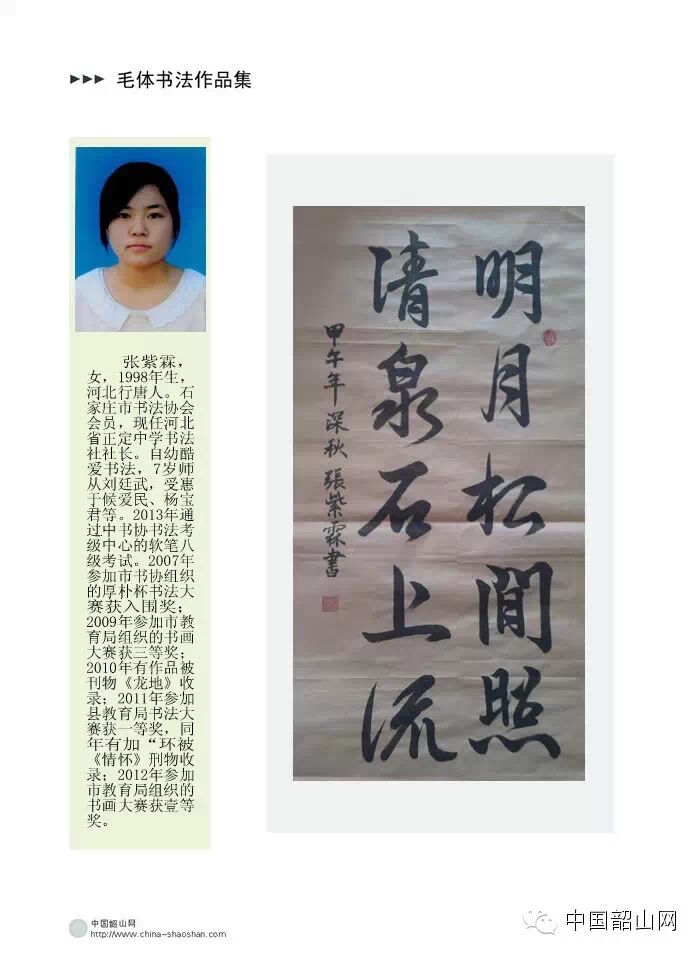 ▶▶▶ 毛体书法作品集
张紫霖，
女，1998年生，
河北行唐人。石
家庄市书法协会
会员，现任河北
省正定中学书法
社社长。自幼酷
爱书法，7岁师
从刘廷武，受惠
于候爱民、杨宝
君等。2013年通
过中书协书法考
级中心的软笔八
级考试。2007年
参加市书协组织
的厚朴杯书法大
赛获入围奖；
2009年参加市教
育局组织的书画
大赛获三等奖；
2010年有作品被
刊物《龙地》收
录；2011年参加
县教育局书法大
赛获一等奖，同
年有加“环被
《情怀》刑物收
录；2012年参加
市教育局组织的
书画大赛获壹等
奖。
明月松間照
清泉石上流
甲午年深秋張紫霖書
中国韶山网
http://www.china-shaoshan.com
中国韶山网